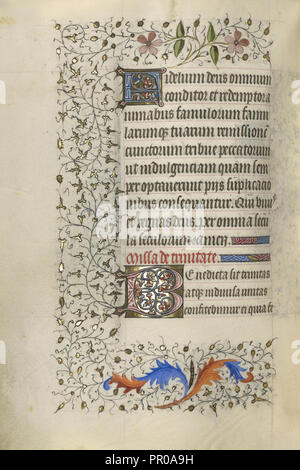 Fidelium deus omnium
conditor et redemptor a
nimabus famulorum famu
larumque tuarum remissionem
cunctorum tribue peccatorum
ut indulgenciam quam sem
per optaverunt pijs supplicatio
nibus consequantur. Qui vivis
et regnas deus. per omnia secu
la seculorum amen.
Missa de trinitate.
Benedicta sit trinitas
atque indivisa unitas
confitebimur ei quia fe
alamy
www.alamy.com
PR0A9H